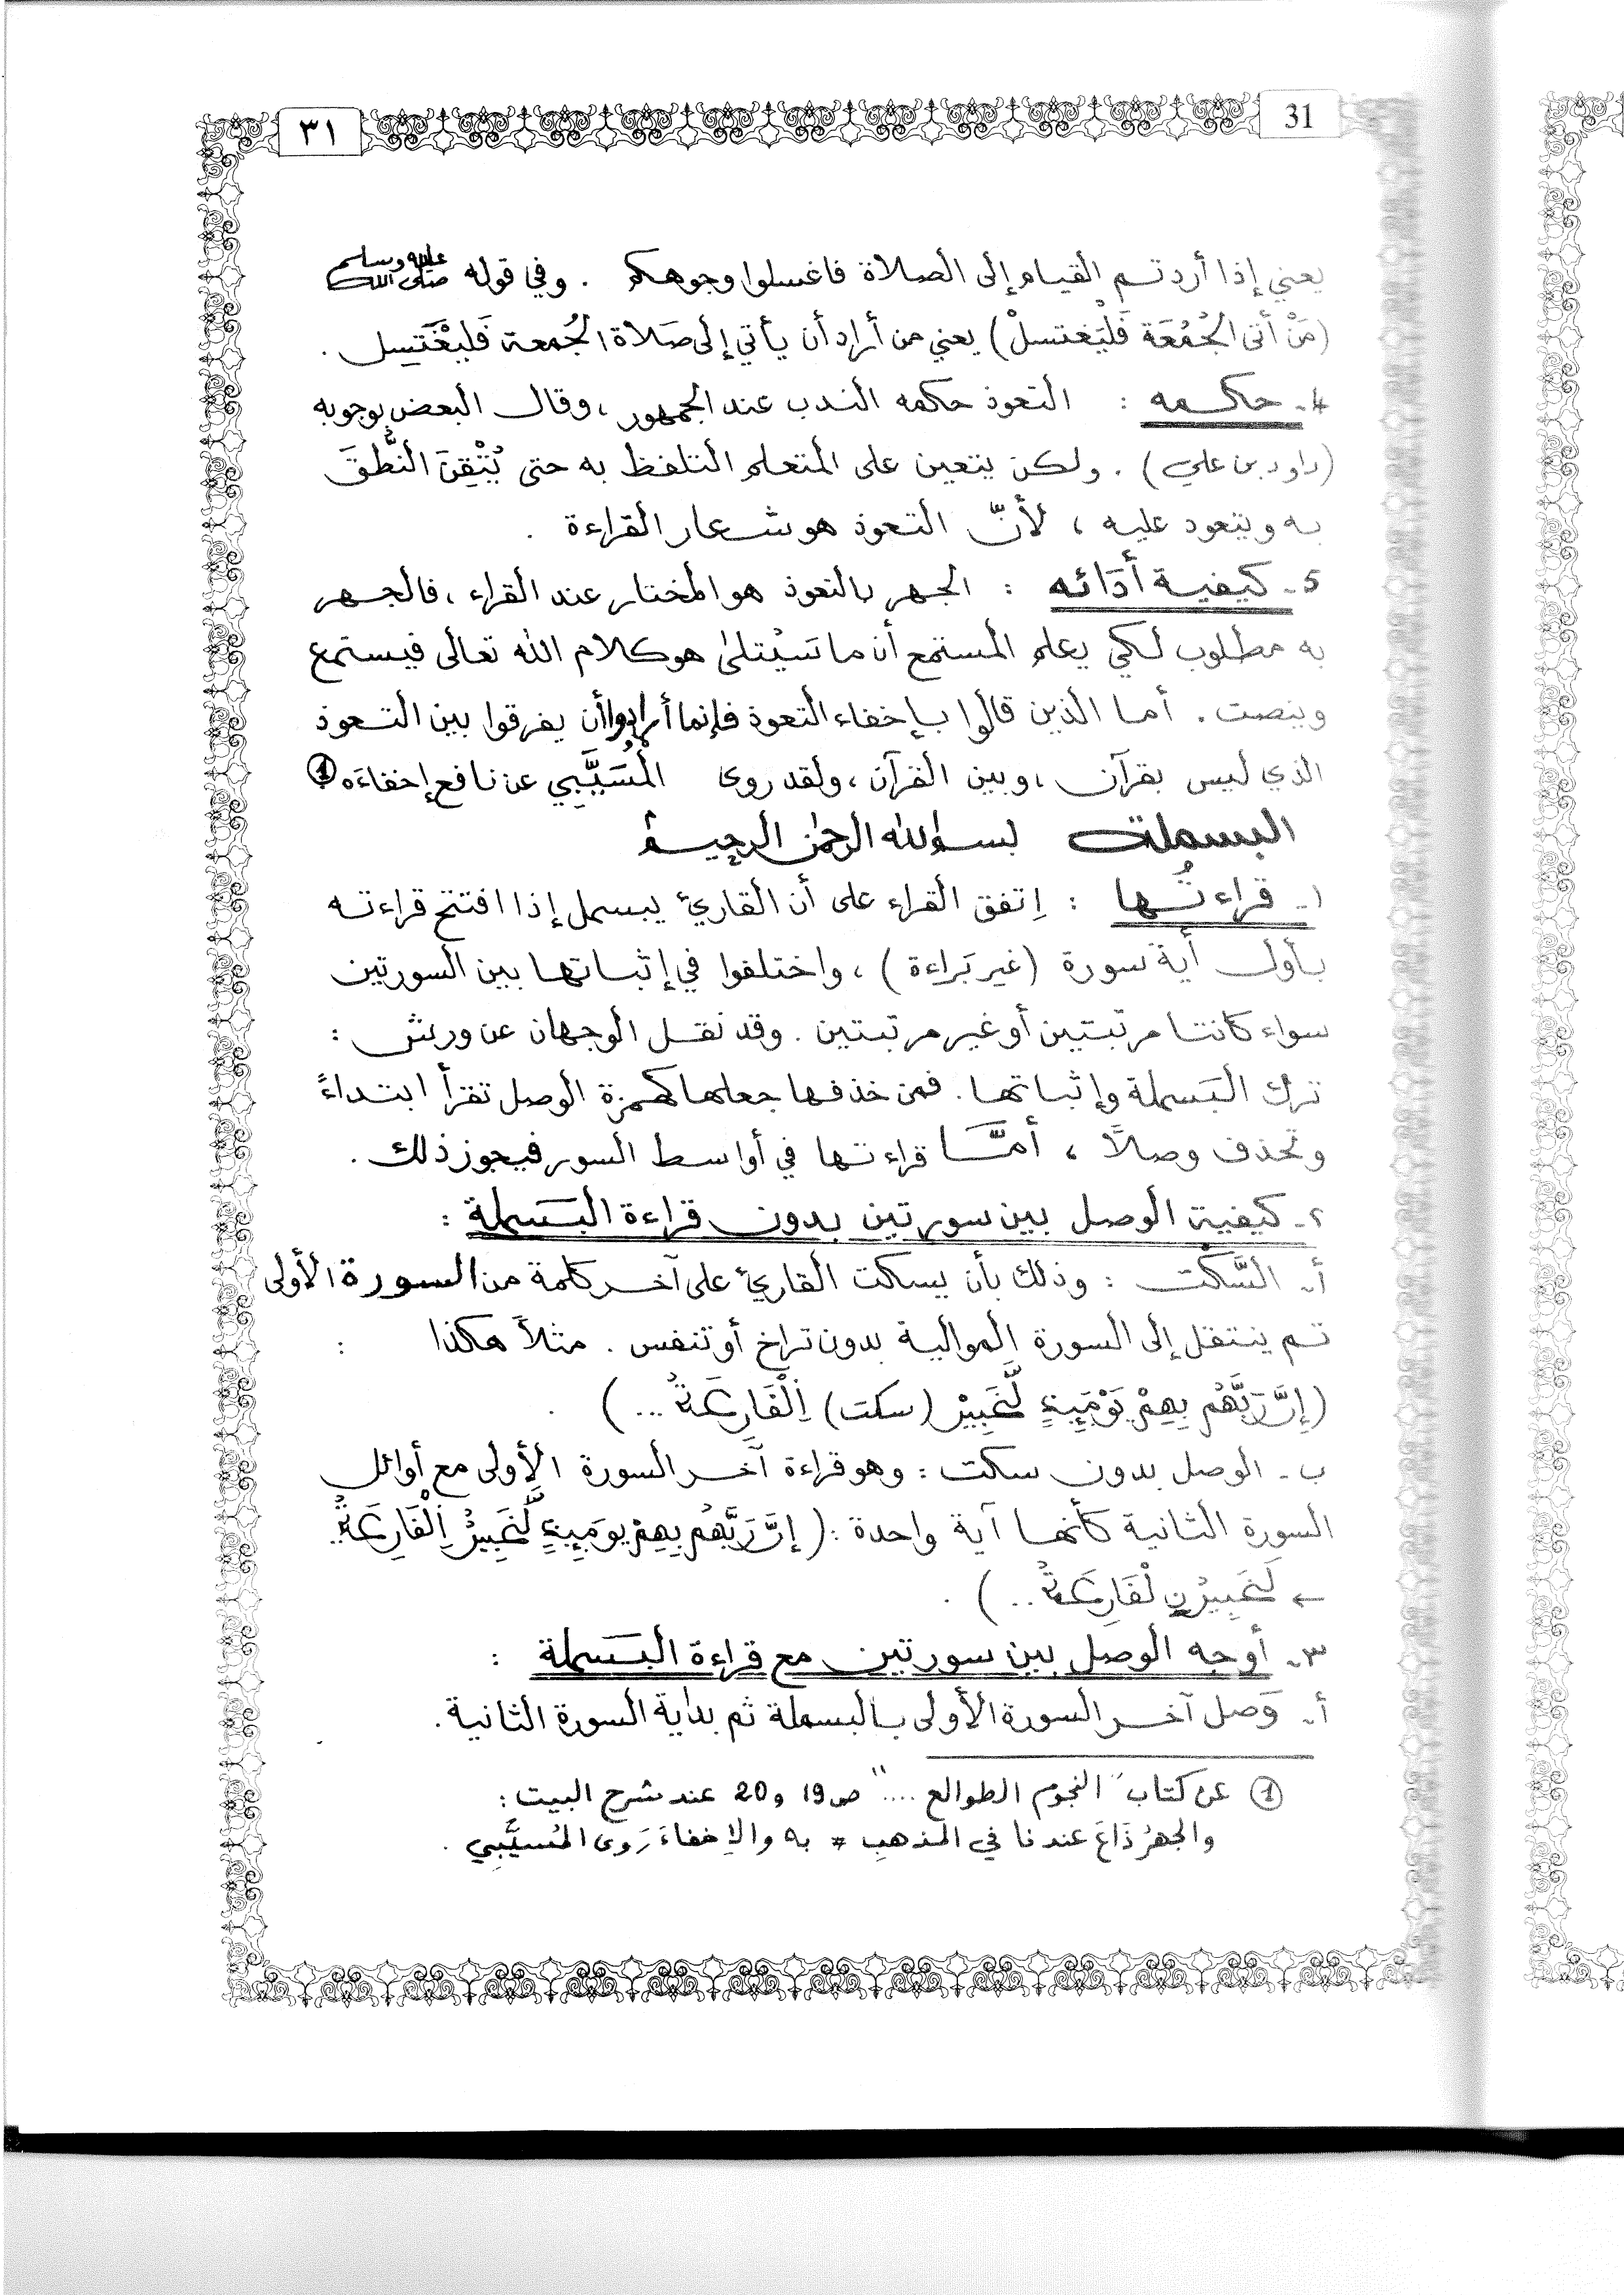 31
٣١
يعني إذا أردتم القيام إلى الصلاة فاغسلوا وجوهكم . وفي قوله صلى الله عليه وسلم
(مَنْ أتى الجُمُعَة فَلْيَغتسلْ) يعني من أراد أن يأتي إلى صَلاة الجُمعة فَليَغْتَسِل .
4- حكمه : التعوذ حكمه الندب عند الجمهور ، وقال البعض بوجوبه
(داود بن علي) . ولكن يتعين على المتعلم التلفظ به حتى يُتْقِنَ النُّطقَ
به ويتعود عليه ، لأنّ التعوذ هو شعار القراءة .
5- كيفية أدَائه : الجهر بالتعوذ هو المختار عند القراء ، فالجهر
به مطلوب لكي يعلم المستمع أن ما سَيُتلىٰ هو كلام الله تعالى فيستمع
وينصت . أما الذين قالوا بإخفاء التعوذ فإنما أرادوا أن يفرقوا بين التعوذ
الذي ليس بقرآن ، وبين القرآن ، ولقد روى المُسَيَّبي عن نافع إخفاءَه ①
البسملة بسم الله الرحمٰن الرحيم
١- قراءتُها : اِتفق القراء على أن القارئ يبسمل إذا افتتح قراءته
بأول أية سورة (غير بَراءة) ، واختلفوا في إثباتها بين السورتين
سواء كانتا مرتبتين أو غير مرتبتين . وقد نقل الوجهان عن ورش :
ترك البَسملة وإثباتها . فمن حذفها جعلها كهمزة الوصل تقرأ ابتداءً
وتحذف وصلاً ، أمَّا قراءتها في أواسط السور فيجوز ذلك .
٢- كيفية الوصل بين سورتين بدون قراءة البَسملة :
أ- السَّكْت : وذلك بأن يسكت القارئ على آخر كلمة من السورة الأولى
تم ينتقل إلى السورة الموالية بدون تراخ أو تنفس . مثلاً هكذا :
(إِنَّ رَبَّهُم بِهِمْ يَوْمَئِذٍ لَّخَبِيرٌ (سكت) اِلْقَارِعَةُ ...) .
ب- الوصل بدون سكت : وهو قراءة آخر السورة الأولى مع أوائل
السورة الثانية كأنها آية واحدة : (إنَّ رَبَّهُم بِهِمْ يومَئِذٍ لَّخَبِيرٌ اِلْقَارِعَةُ ..
← لَخَبِيرُنِ لْقَارِعَةُ ..) .
٣- أوجه الوصل بين سورتين مع قراءة البَسملة :
أ- وَصل آخر السورة الأولى بالبسملة ثم بداية السورة الثانية .
① عن كتاب "النجوم الطوالع ...." ص 19 و 20 عند شرح البيت :
والجهرُ ذَاعَ عندنا في المذهبِ * به والاِخفاءَ رَوى المُسيَّبي .